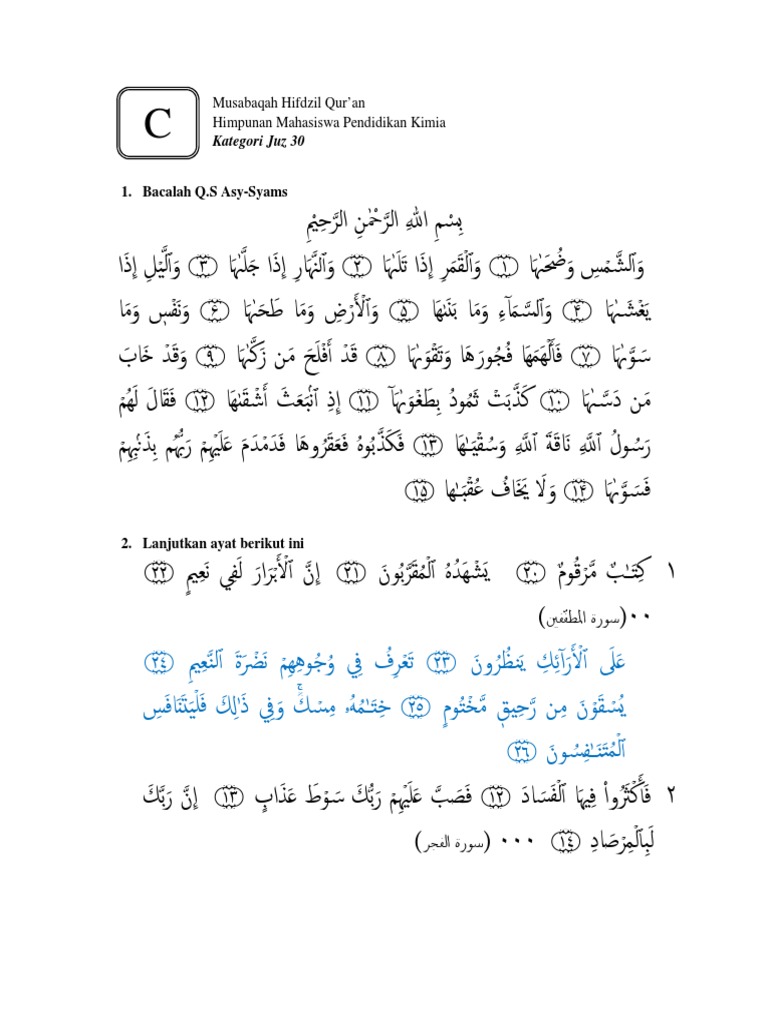 C
Musabaqah Hifdzil Qur'an
Himpunan Mahasiswa Pendidikan Kimia
Kategori Juz 30
1. Bacalah Q.S Asy-Syams
بِسْمِ اللهِ الرَّحْمٰنِ الرَّحِيْمِ
وَٱلشَّمْسِ وَضُحَىٰهَا ﴿١﴾ وَٱلْقَمَرِ إِذَا تَلَىٰهَا ﴿٢﴾ وَٱلنَّهَارِ إِذَا جَلَّىٰهَا ﴿٣﴾ وَٱلَّيْلِ إِذَا
يَغْشَىٰهَا ﴿٤﴾ وَٱلسَّمَآءِ وَمَا بَنَىٰهَا ﴿٥﴾ وَٱلْأَرْضِ وَمَا طَحَىٰهَا ﴿٦﴾ وَنَفْسٍ وَمَا
سَوَّىٰهَا ﴿٧﴾ فَأَلْهَمَهَا فُجُورَهَا وَتَقْوَىٰهَا ﴿٨﴾ قَدْ أَفْلَحَ مَن زَكَّىٰهَا ﴿٩﴾ وَقَدْ خَابَ
مَن دَسَّىٰهَا ﴿١٠﴾ كَذَّبَتْ ثَمُودُ بِطَغْوَىٰهَآ ﴿١١﴾ إِذِ ٱنۢبَعَثَ أَشْقَىٰهَا ﴿١٢﴾ فَقَالَ لَهُمْ
رَسُولُ ٱللَّهِ نَاقَةَ ٱللَّهِ وَسُقْيَـٰهَا ﴿١٣﴾ فَكَذَّبُوهُ فَعَقَرُوهَا فَدَمْدَمَ عَلَيْهِمْ رَبُّهُم بِذَنۢبِهِمْ
فَسَوَّىٰهَا ﴿١٤﴾ وَلَا يَخَافُ عُقْبَـٰهَا ﴿١٥﴾
2. Lanjutkan ayat berikut ini
١ كِتَـٰبٌ مَّرْقُومٌ ﴿٢٠﴾ يَشْهَدُهُ ٱلْمُقَرَّبُونَ ﴿٢١﴾ إِنَّ ٱلْأَبْرَارَ لَفِي نَعِيمٍ ﴿٢٢﴾
٠٠(سورة المطففين)
عَلَى ٱلْأَرَآئِكِ يَنظُرُونَ ﴿٢٣﴾ تَعْرِفُ فِي وُجُوهِهِمْ نَضْرَةَ ٱلنَّعِيمِ ﴿٢٤﴾
يُسْقَوْنَ مِن رَّحِيقٍ مَّخْتُومٍ ﴿٢٥﴾ خِتَـٰمُهُۥ مِسْكٌ ۚ وَفِي ذَٰلِكَ فَلْيَتَنَافَسِ
ٱلْمُتَنَـٰفِسُونَ ﴿٢٦﴾
٢ فَأَكْثَرُوا۟ فِيهَا ٱلْفَسَادَ ﴿١٢﴾ فَصَبَّ عَلَيْهِمْ رَبُّكَ سَوْطَ عَذَابٍ ﴿١٣﴾ إِنَّ رَبَّكَ
لَبِٱلْمِرْصَادِ ﴿١٤﴾ ٠٠٠ (سورة الفجر)